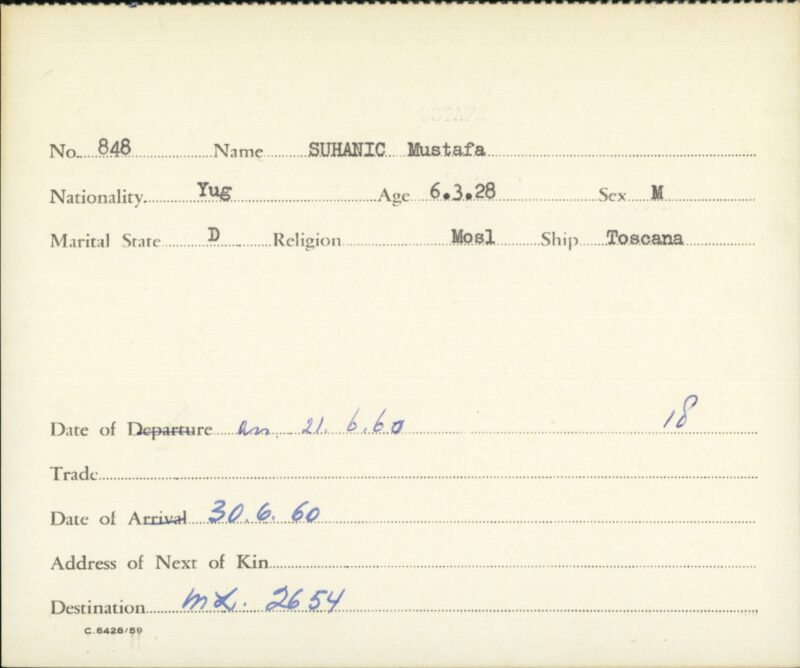 No. 848 Name SUHANIC Mustafa
Nationality Yug Age 6.3.28 Sex M
Marital State D Religion Mosl Ship Toscana
Date of Departure arr. 21.6.60 18
Trade
Date of Arrival 30.6.60
Address of Next of Kin
Destination 2654
C.8428/59